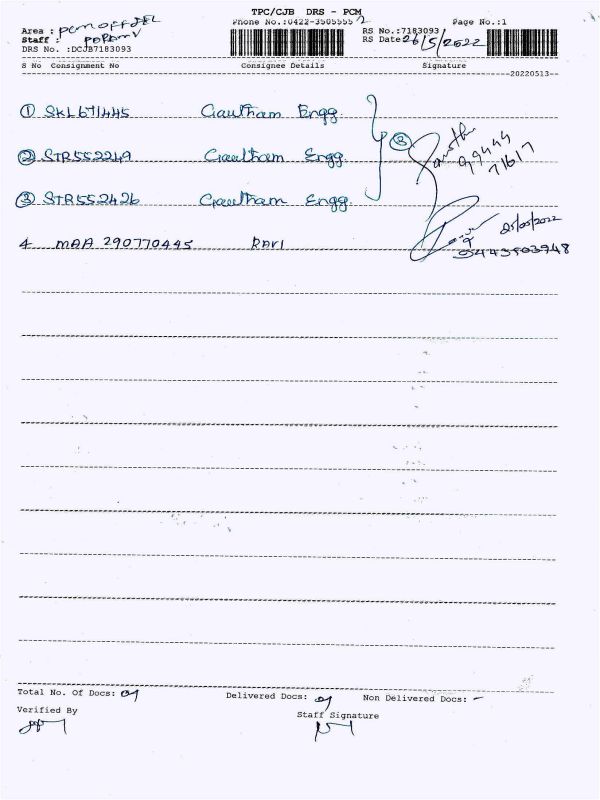 TPC/CJB DRS - PCM
Area : PCM OFFICE Phone No.:0422-3505555 2 Page No.:1
Staff : RS No.:7183093
DRS No. :DCJB7183093 RS Date 26/5/2022
S No Consignment No Consignee Details Signature
20220513
① SKL671445 Gautham Engg.
② STR552249 Gautham Engg. ③ 99444
71617
③ STR552426 Gautham Engg.
4 MAA 290770445 RAVI 25/05/2022
Total No. Of Docs: 04 Delivered Docs: 04 Non Delivered Docs: -
Verified By Staff Signature